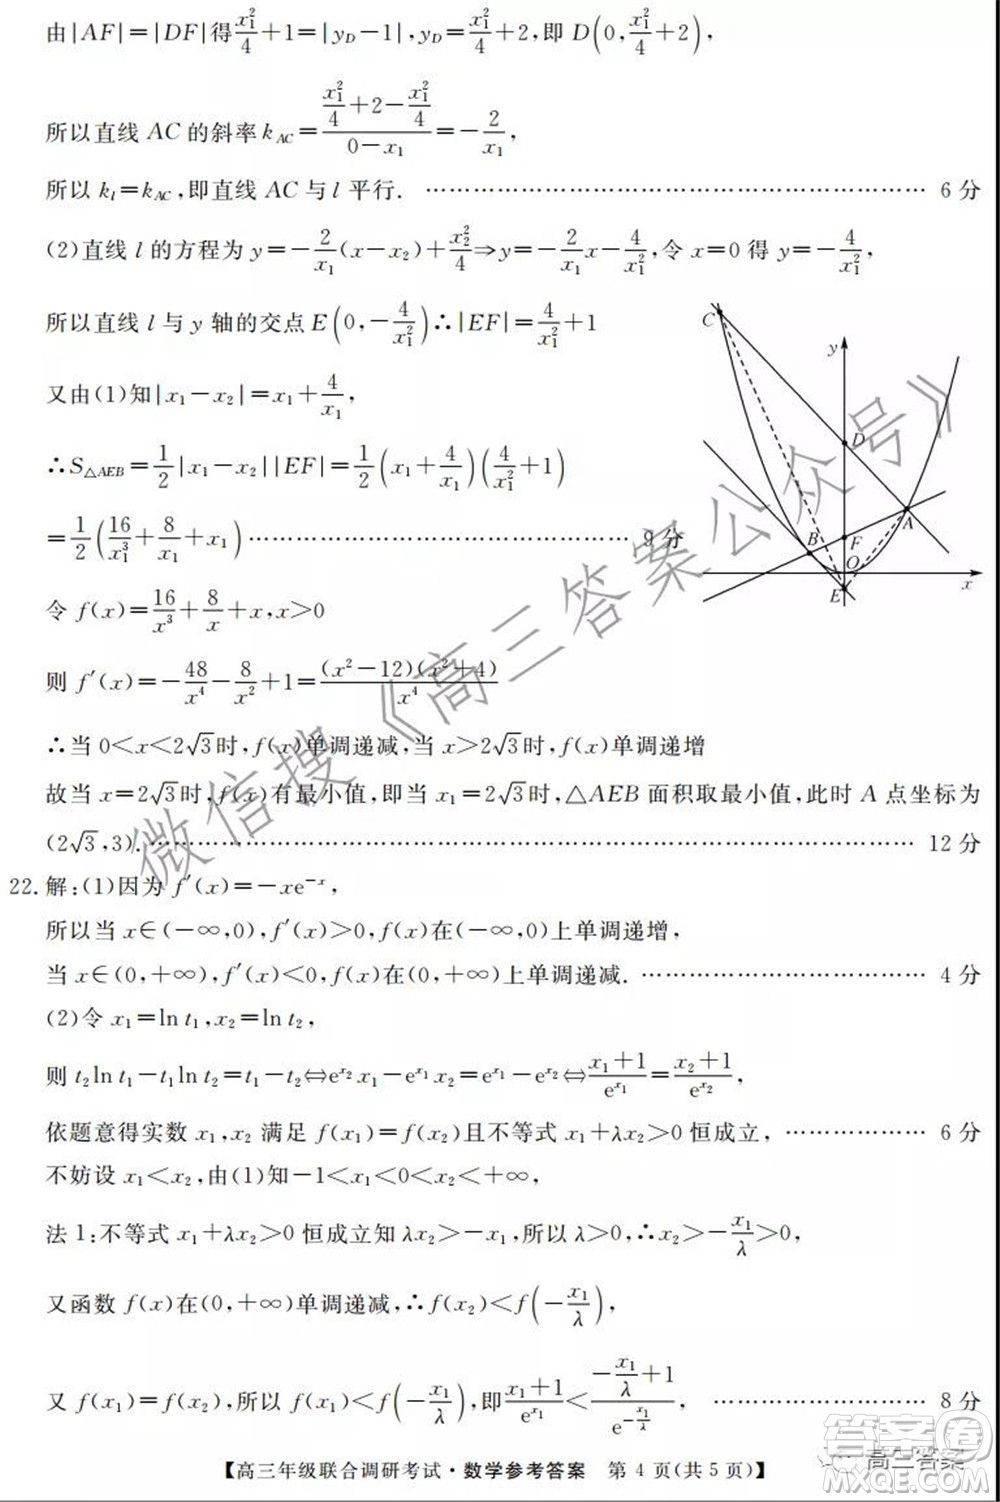 由|AF|=|DF|得x₁²/4+1=|y_D-1|,y_D=x₁²/4+2,即 D(0,x₁²/4+2),
所以直线 AC 的斜率 k_AC=(x₁²/4+2-x₁²/4)/(0-x₁)=-2/x₁,
所以 k_l=k_AC,即直线 AC 与 l 平行. ………………………………………………………… 6 分
(2)直线 l 的方程为 y=-2/x₁(x-x₂)+x₂²/4⇒y=-2/x₁x-4/x₁²,令 x=0 得 y=-4/x₁²,
所以直线 l 与 y 轴的交点 E(0,-4/x₁²)∴|EF|=4/x₁²+1
又由(1)知|x₁-x₂|=x₁+4/x₁,
∴S△AEB=1/2|x₁-x₂||EF|=1/2(x₁+4/x₁)(4/x₁²+1)
=1/2(16/x₁³+8/x₁+x₁)………………………………………… 9 分
C
y
D
A
B
F
O
x
E
令 f(x)=16/x³+8/x+x,x>0
则 f′(x)=-48/x⁴-8/x²+1=(x²-12)(x²+4)/x⁴
∴当 0<x<2√3时,f(x)单调递减,当 x>2√3时,f(x)单调递增
故当 x=2√3时,f(x)有最小值,即当 x₁=2√3时,△AEB 面积取最小值,此时 A 点坐标为
(2√3,3).……………………………………………………………………………………… 12 分
22.解:(1)因为 f′(x)=-xe⁻ˣ,
所以当 x∈(-∞,0),f′(x)>0,f(x)在(-∞,0)上单调递增,
当 x∈(0,+∞),f′(x)<0,f(x)在(0,+∞)上单调递减. ……………………………… 4 分
(2)令 x₁=ln t₁,x₂=ln t₂,
则 t₂ln t₁-t₁ln t₂=t₁-t₂⇔e^x₂ x₁-e^x₁ x₂=e^x₁-e^x₂⇔(x₁+1)/e^x₁=(x₂+1)/e^x₂,
依题意得实数 x₁,x₂ 满足 f(x₁)=f(x₂)且不等式 x₁+λx₂>0 恒成立, ……………… 6 分
不妨设 x₁<x₂,由(1)知-1<x₁<0<x₂<+∞,
法 1:不等式 x₁+λx₂>0 恒成立知 λx₂>-x₁,所以 λ>0,∴x₂>-x₁/λ>0,
又函数 f(x)在(0,+∞)单调递减,∴f(x₂)<f(-x₁/λ),
又 f(x₁)=f(x₂),所以 f(x₁)<f(-x₁/λ),即(x₁+1)/e^x₁<(-x₁/λ+1)/e^(-x₁/λ), ……………………… 8 分
【高三年级联合调研考试·数学参考答案 第 4 页(共 5 页)】
微信搜《高三答案公众号》
高三答案
答案圈
MXQE.COM